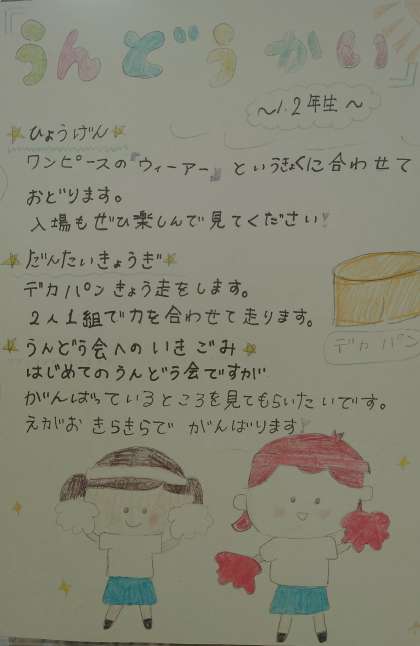 うんどうかい
～1.2年生～
ひょうげん
ワンピースの『ウィーアー』というきょくに合わせて
おどります。
入場もぜひ楽しんで見てください!
だんたいきょうぎ
デカパンきょう走をします。
2人1組で力を合わせて走ります。
デカパン
うんどう会へのいきごみ
はじめてのうんどう会ですが
がんばっているところを見てもらいたいです。
えがおきらきらでがんばります!